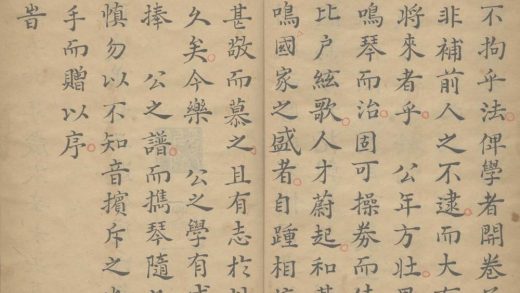 不拘乎法俾學者開卷
非補前人之不逮而大有
將來者乎 公年方壯
鳴琴而治固可操券而
比户絃歌人才蔚起和其
鳴國家之盛者自踵相
甚敬而慕之且有志於
久矣今樂 公之學有成
捧 公之譜而携琴隨
慎勿以不知音擯斥之
手而贈以序
旹